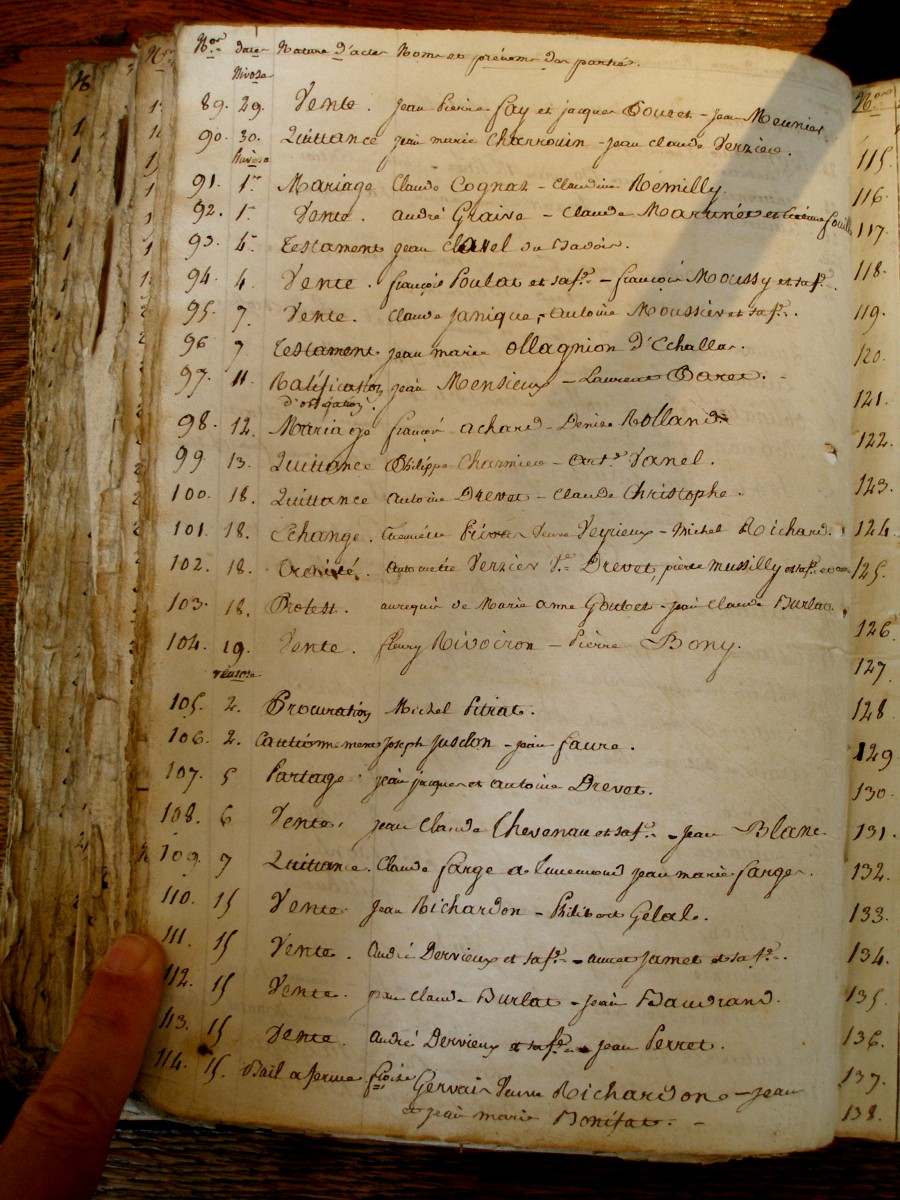 Nos dates Nature d'actes Noms et prénoms des parties.
Nivose
89. 29. Vente. jean pierre fay et jacques Gouret - jean Meunier
90. 30. Quittance jean marie Charrouin - jean claude Verzieu.
91. 1er Mariage Claude Cognat - Claudine Remilly.
92. 1er Vente. andré Graive - Claude Martinet et
93. 4e Testament jean Clavel du
94. 4. Vente. françois Poulat et sa fe - françois Moussy et sa fe.
95. 7. Vente. Claude Janique, - antoine Moussier et sa fe.
96 7 Testament jean marie Ollagnion d'Echallas.
97. 11. Ratification jean Mensieux - Laurent Baret. -
d'obligation.
98. 12. Mariage françois achard - Denise Rolland
99 13. Quittance Philippe Charmieu - Vanel.
100. 18. Quittance antoine Drevet - Claude Christophe.
101. 18. Echange. Veuve Veyrieux - Michel Richard.
102. 18. antoinette Verzier Ve Drevet, pierre Mussilly et sa fe et
103. 18. Protest. a la requis de Marie anne Goubet - jean Claude Burlat
104. 19. Vente. fleury Rivoiron - Pierre Bony.
ventose
105. 2. Procuration Michel Pitrat.
106. 2. Cautionnement Joseph Jusdon - jean faure.
107. 5 Partage jean jacques et antoine Drevet.
108. 6 Vente. jean Claude Chevenau et sa fe. - Jean Blanc
109. 7 Quittance. Claude farge jean marie farge.
110. 15 Vente. Jean Richardon - Philibert Gelas.
111. 15 Vente. André Dervieux et sa fe. - Jamet et sa fe.
112. 15 Vente. jean Claude Burlat - jean Baudrand.
113. 15 Vente. André Dervieux et sa fe. - jean Perret.
114. 15. Bail a ferme fçoise Gervais Veuve Richardon - jean
et jean marie Bonifat. -
Nos
115.
116.
117.
118.
119.
120.
121.
122.
123.
124.
125.
126.
127.
128
129
130.
131.
132.
133.
134.
135.
136.
137.
138.